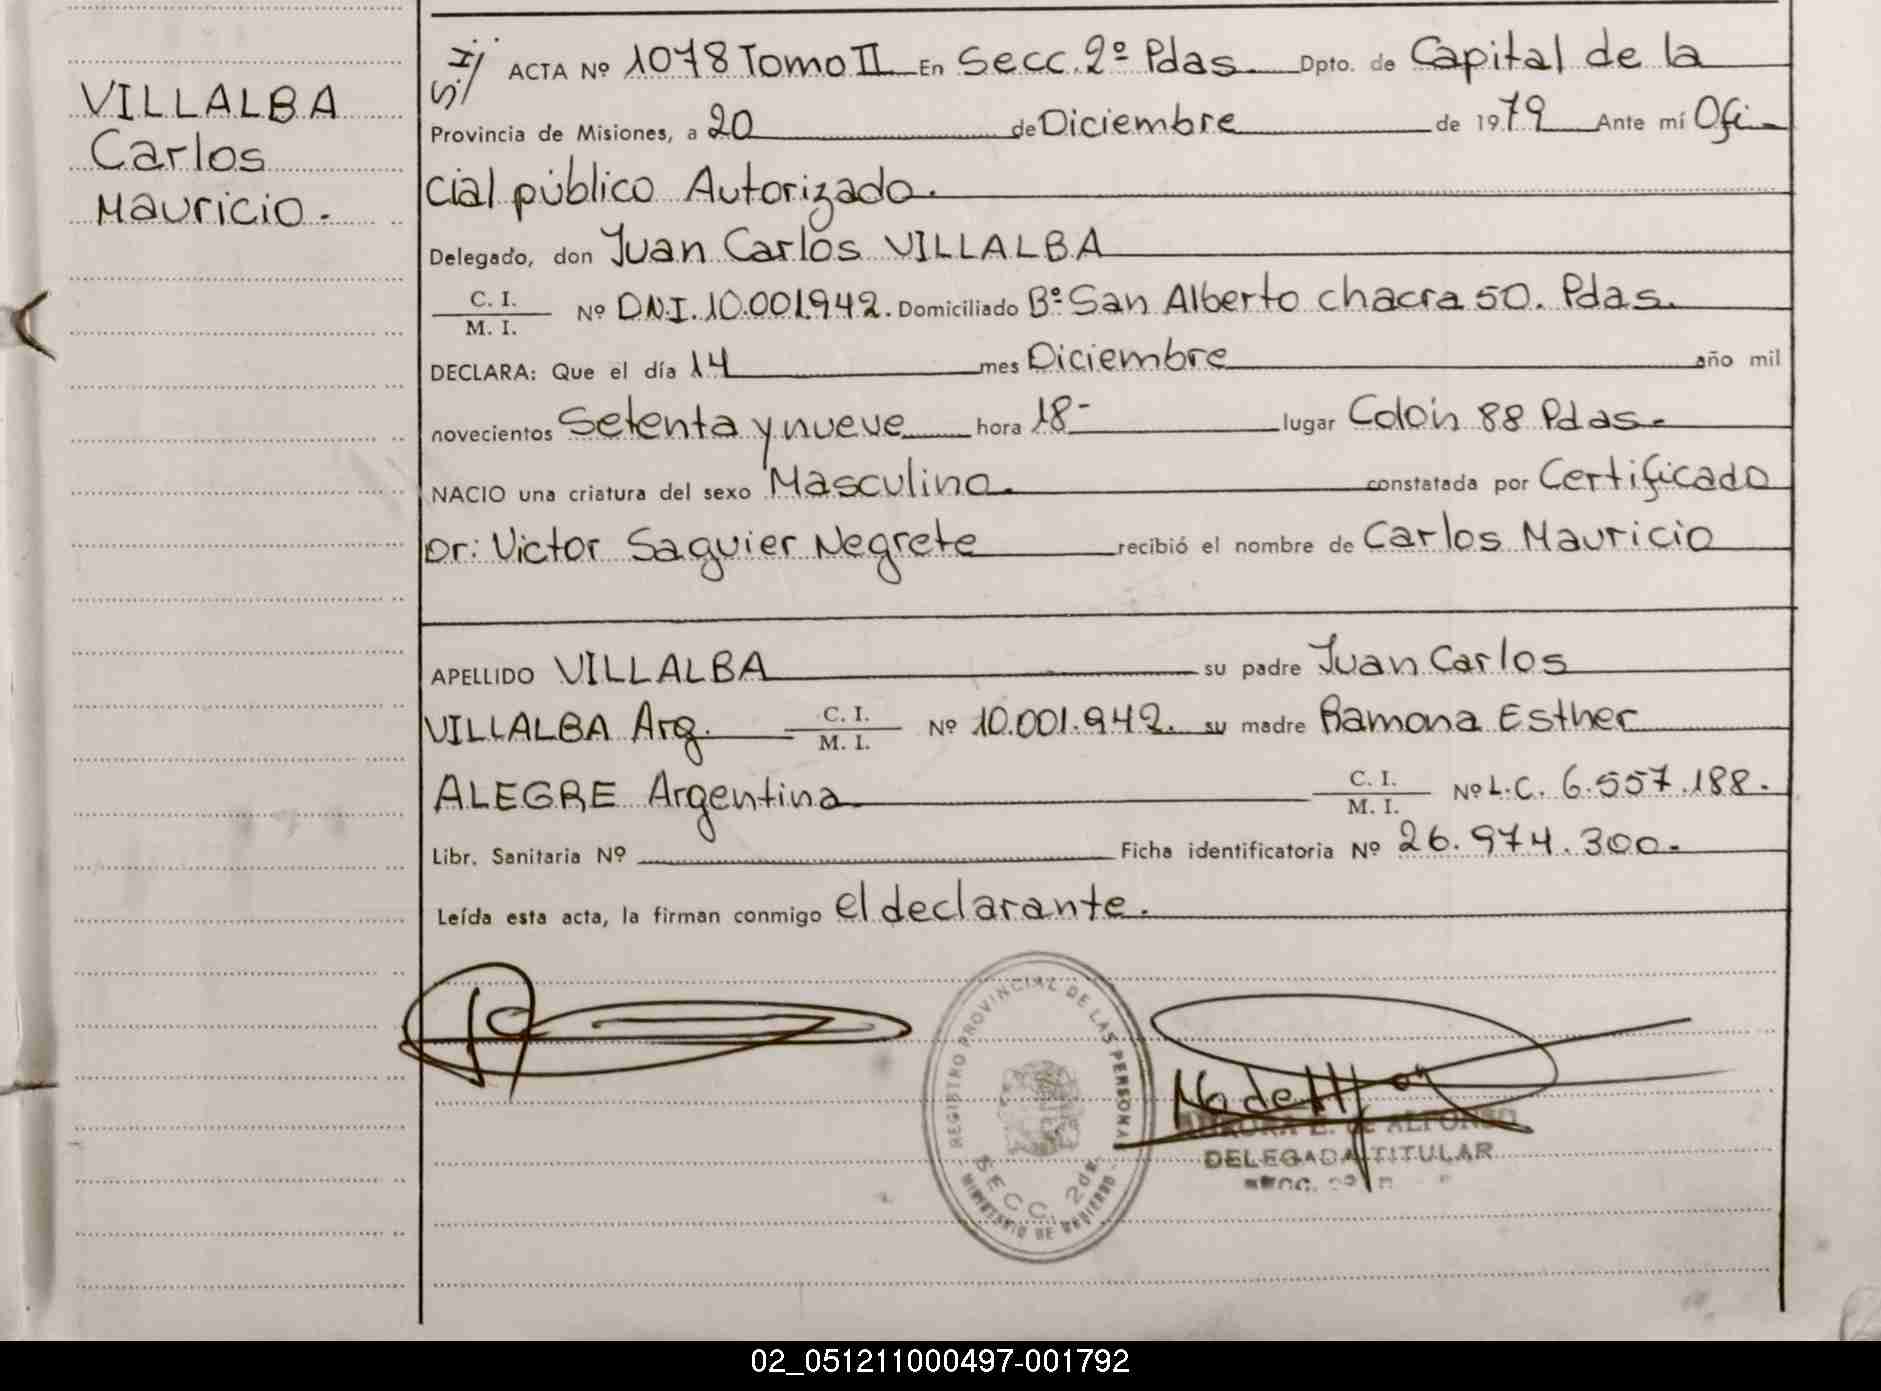 VILLALBA
Carlos
Mauricio.-
S.I/ ACTA Nº 1078 Tomo II En Secc. 2º Pdas. Dpto. de Capital de la
Provincia de Misiones, a 20 de Diciembre de 1979 Ante mí Ofi-
cial público Autorizado.
Delegado, don Juan Carlos VILLALBA
C. I.
M. I. Nº D.N.I. 10.001.942. Domiciliado Bº San Alberto chacra 50. Pdas.
DECLARA: Que el día 14 mes Diciembre año mil
novecientos Setenta y nueve hora 18- lugar Colón 88 Pdas.-
NACIO una criatura del sexo Masculino. constatada por Certificado
Dr: Victor Saguier Negrete recibió el nombre de Carlos Mauricio
APELLIDO VILLALBA su padre Juan Carlos
VILLALBA Arg. C. I. M. I. Nº 10.001.942. su madre Ramona Esther
ALEGRE Argentina C. I. M. I. Nº L.C. 6.557.188.
Libr. Sanitaria Nº Ficha identificatoria Nº 26.974.300.-
Leída esta acta, la firman conmigo el declarante.
REGISTRO PROVINCIAL DE LAS PERSONAS
SECC. 2da.
MINISTERIO DE GOBIERNO
AURORA E. de ALFONSO
DELEGADA TITULAR
02_051211000497-001792